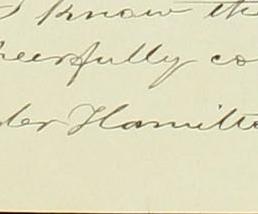 I know th
heerfully co
der Hamilto